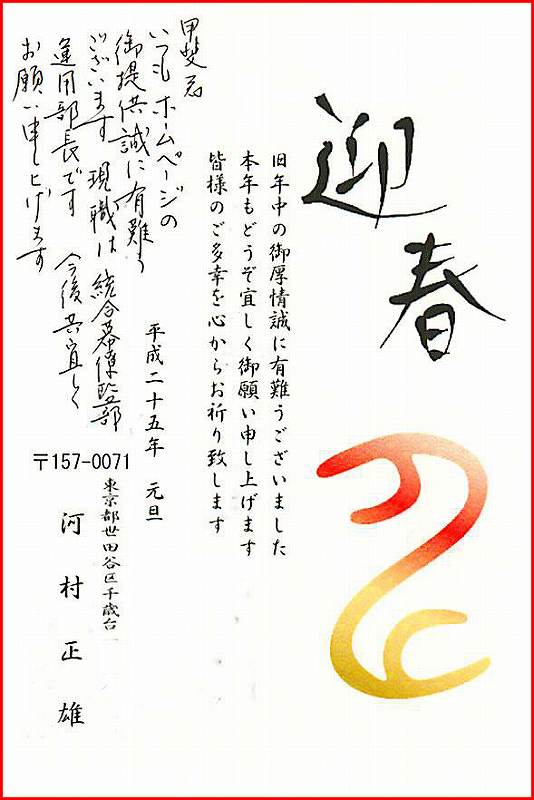 迎春
旧年中の御厚情誠に有難うございました
本年もどうぞ宜しく御願い申し上げます
皆様のご多幸を心からお祈り致します
平成二十五年 元旦
甲斐君
いつもホームページの
御提供誠に有難う
ございます 現職は統合幕僚監部
運用部長です 今後共宜しく
お願い申し上げます
〒157-0071
東京都世田谷区千歳台
河村正雄